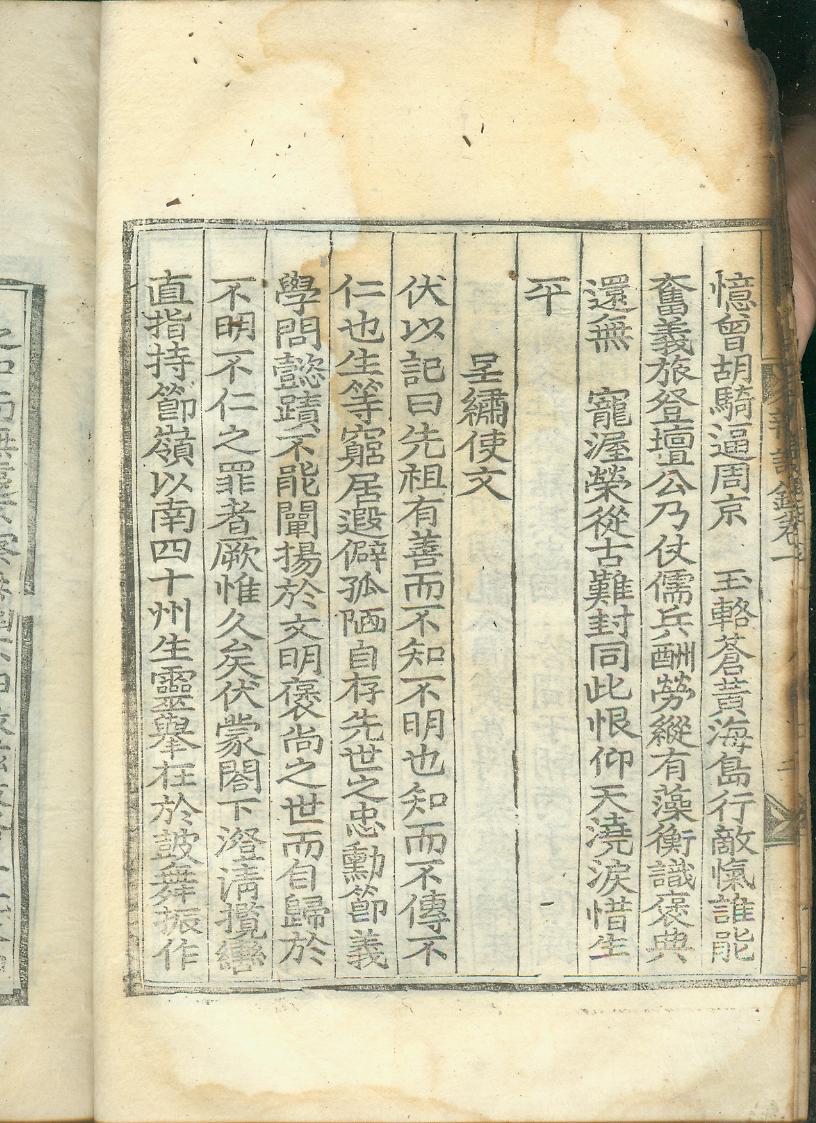 憶曾胡騎逼周京 玉輅蒼黃海島行敵愾誰能
奮義旅登壇公乃仗儒兵酬勞縱有藻衡識褒典
還無 寵渥榮從古難封同此恨仰天澆淚惜生
平
呈繡使文
伏以記曰先祖有善而不知不明也知而不傳不
仁也生等窮居遐僻孤陋自存先世之忠勳節義
學問懿蹟不能闡揚於文明褒尚之世而自歸於
不明不仁之罪者厥惟久矣伏蒙閤下澄清攬轡
直指持節嶺以南四十州生靈擧在於鼓舞振作